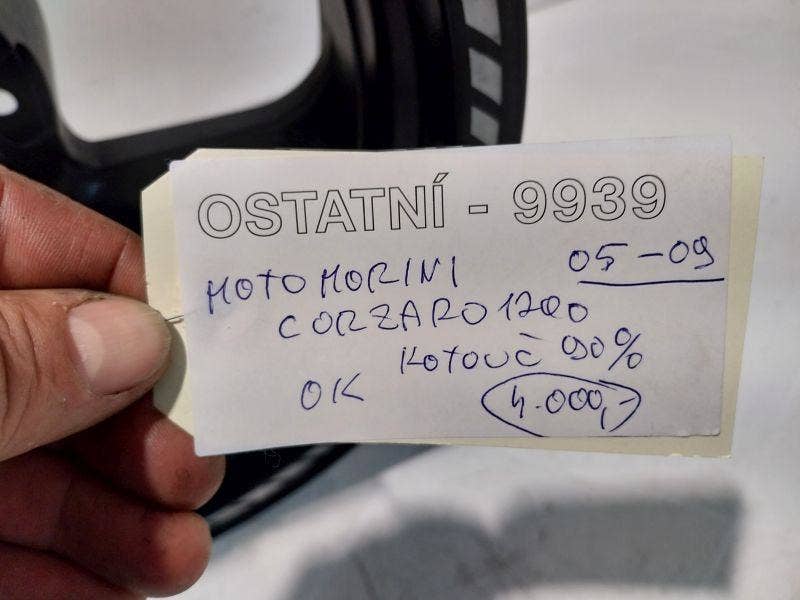 OSTATNÍ - 9939
05-09
MOTO MORINI
CORZARO 1200
KOTOUČ 90%
OK
4.000,-